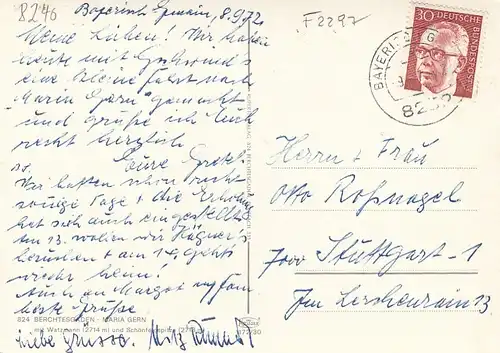 8246
Bayerisch Gmain, 8.9.72
F 2297
Meine Lieben! Wir haben
heute mit
eine kleine Fahrt nach
"Maria Gern" gemacht
und grüße ich Euch
recht herzlich
Eure Gretel
Wir hatten schon recht
sonnige Tage + die Erholung
hat sich auch eingestellt.
Am 13. wollen wir
besuchen + am 14. geht's
wieder heim!
Auch an Margot
beste Grüße
824 BERCHTESGADEN - MARIA GERN
mit Watzmann (2714 m) und Schönfeldspitze
Liebe Grüsse
872/30
30 DEUTSCHE
BUNDESPOST
BAYERISCH G
8232
Herrn + Frau
Otto Roßnagel
7000 Stuttgart-1
Im Lerchenrain